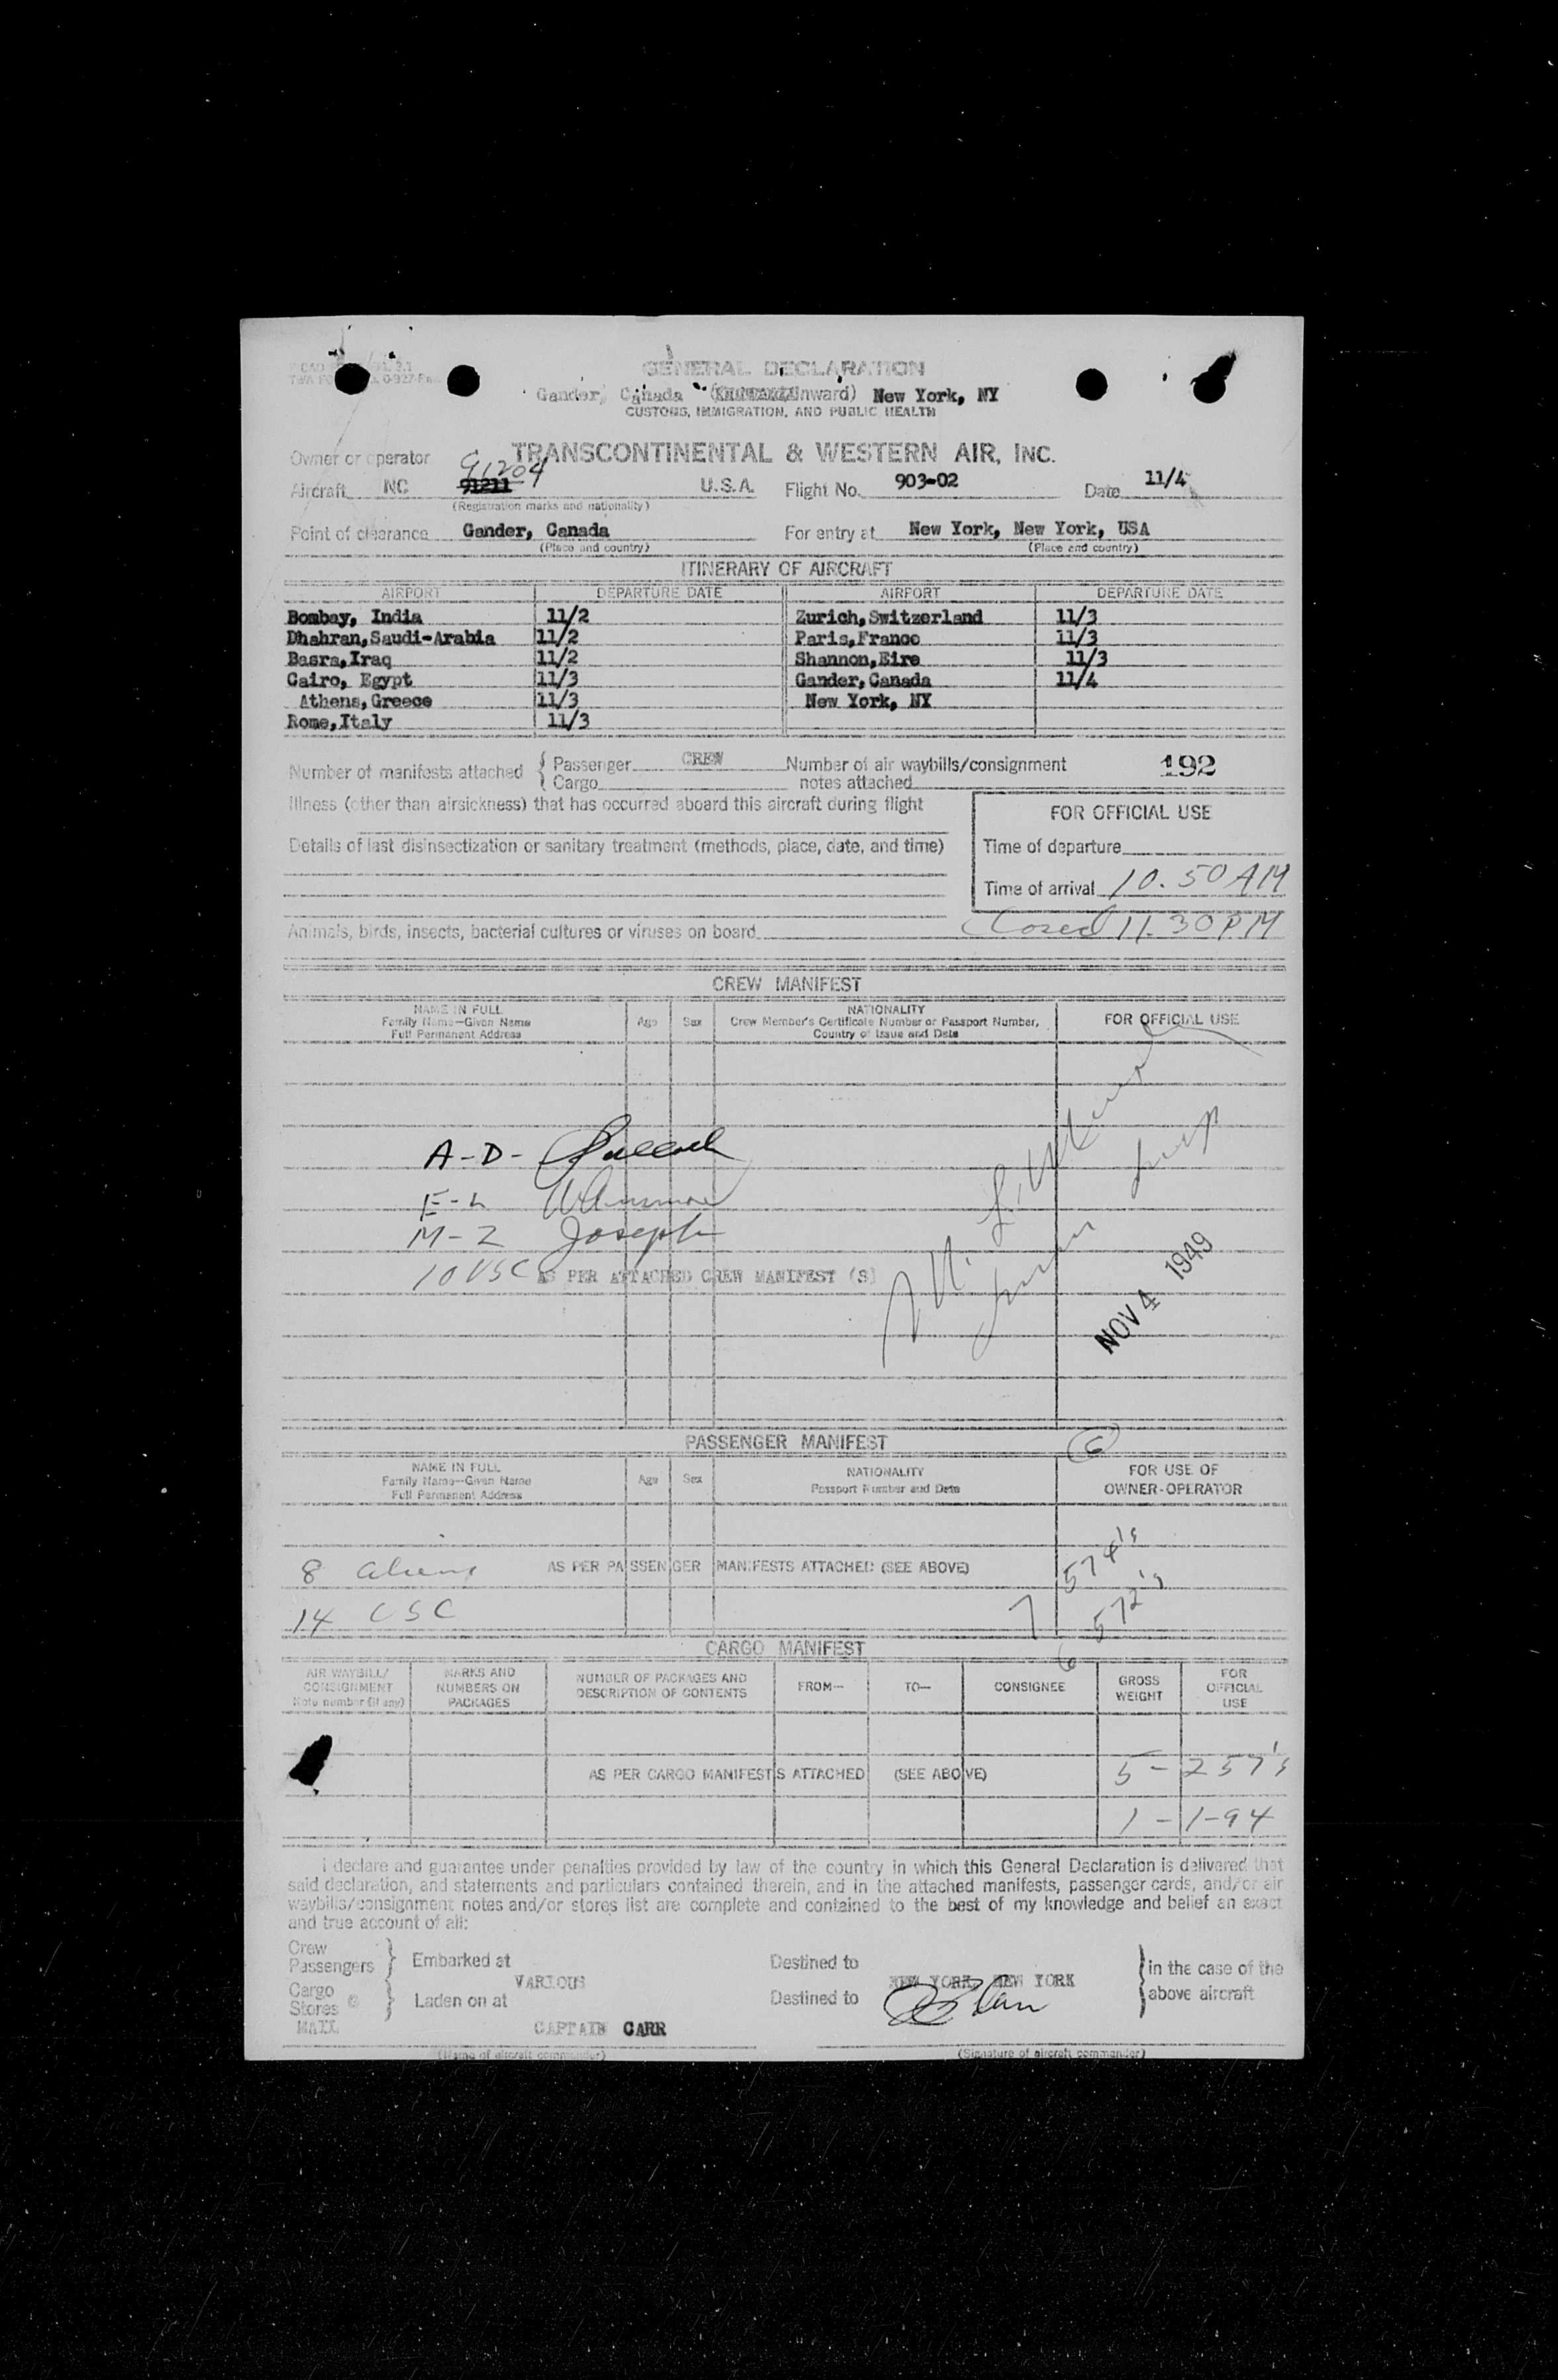 GENERAL DECLARATION
Gander, Canada (Inward) New York, NY
CUSTOMS, IMMIGRATION, AND PUBLIC HEALTH
Owner or operator TRANSCONTINENTAL & WESTERN AIR, INC.
91204
Aircraft NC 91211 U.S.A. Flight No. 903-02 Date 11/4
(Registration marks and nationality)
Point of clearance Gander, Canada For entry at New York, New York, USA
(Place and country) (Place and country)
ITINERARY OF AIRCRAFT
AIRPORT DEPARTURE DATE AIRPORT DEPARTURE DATE
Bombay, India 11/2 Zurich,Switzerland 11/3
Dhahran,Saudi-Arabia 11/2 Paris,France 11/3
Basra,Iraq 11/2 Shannon,Eire 11/3
Cairo, Egypt 11/3 Gander,Canada 11/4
Athens,Greece 11/3 New York, NY
Rome,Italy 11/3
Number of manifests attached { Passenger CREW Number of air waybills/consignment 192
Cargo notes attached
Illness (other than airsickness) that has occurred aboard this aircraft during flight
FOR OFFICIAL USE
Details of last disinsectization or sanitary treatment (methods, place, date, and time)
Time of departure
Time of arrival 10.50 AM
Closed 11.30 PM
Animals, birds, insects, bacterial cultures or viruses on board
CREW MANIFEST
NAME IN FULL Age Sex NATIONALITY FOR OFFICIAL USE
Family Name—Given Name Crew Member's Certificate Number or Passport Number,
Full Permanent Address Country of Issue and Date
A-D-
E-L
M-Z Joseph
10 USC AS PER ATTACHED CREW MANIFEST (S)
NOV 4 1949
PASSENGER MANIFEST 6
NAME IN FULL Age Sex NATIONALITY FOR USE OF
Family Name—Given Name Passport Number and Date OWNER-OPERATOR
Full Permanent Address
8 aliens AS PER PASSENGER MANIFESTS ATTACHED (SEE ABOVE)
14 USC
7 574's
6 572's
CARGO MANIFEST
AIR WAYBILL/ CONSIGNMENT Note number (if any) MARKS AND NUMBERS ON PACKAGES NUMBER OF PACKAGES AND DESCRIPTION OF CONTENTS FROM— TO— CONSIGNEE GROSS WEIGHT FOR OFFICIAL USE
AS PER CARGO MANIFESTS ATTACHED (SEE ABOVE) 5 - 257's
1 - 1-94
I declare and guarantee under penalties provided by law of the country in which this General Declaration is delivered that
said declaration, and statements and particulars contained therein, and in the attached manifests, passenger cards, and/or air
waybills/consignment notes and/or stores list are complete and contained to the best of my knowledge and belief an exact
and true account of all:
Crew
Passengers } Embarked at Destined to
VARIOUS NEW YORK, NEW YORK } in the case of the
Cargo above aircraft
Stores Laden on at Destined to
MAIL CAPTAIN CARR
(Name of aircraft commander) (Signature of aircraft commander)